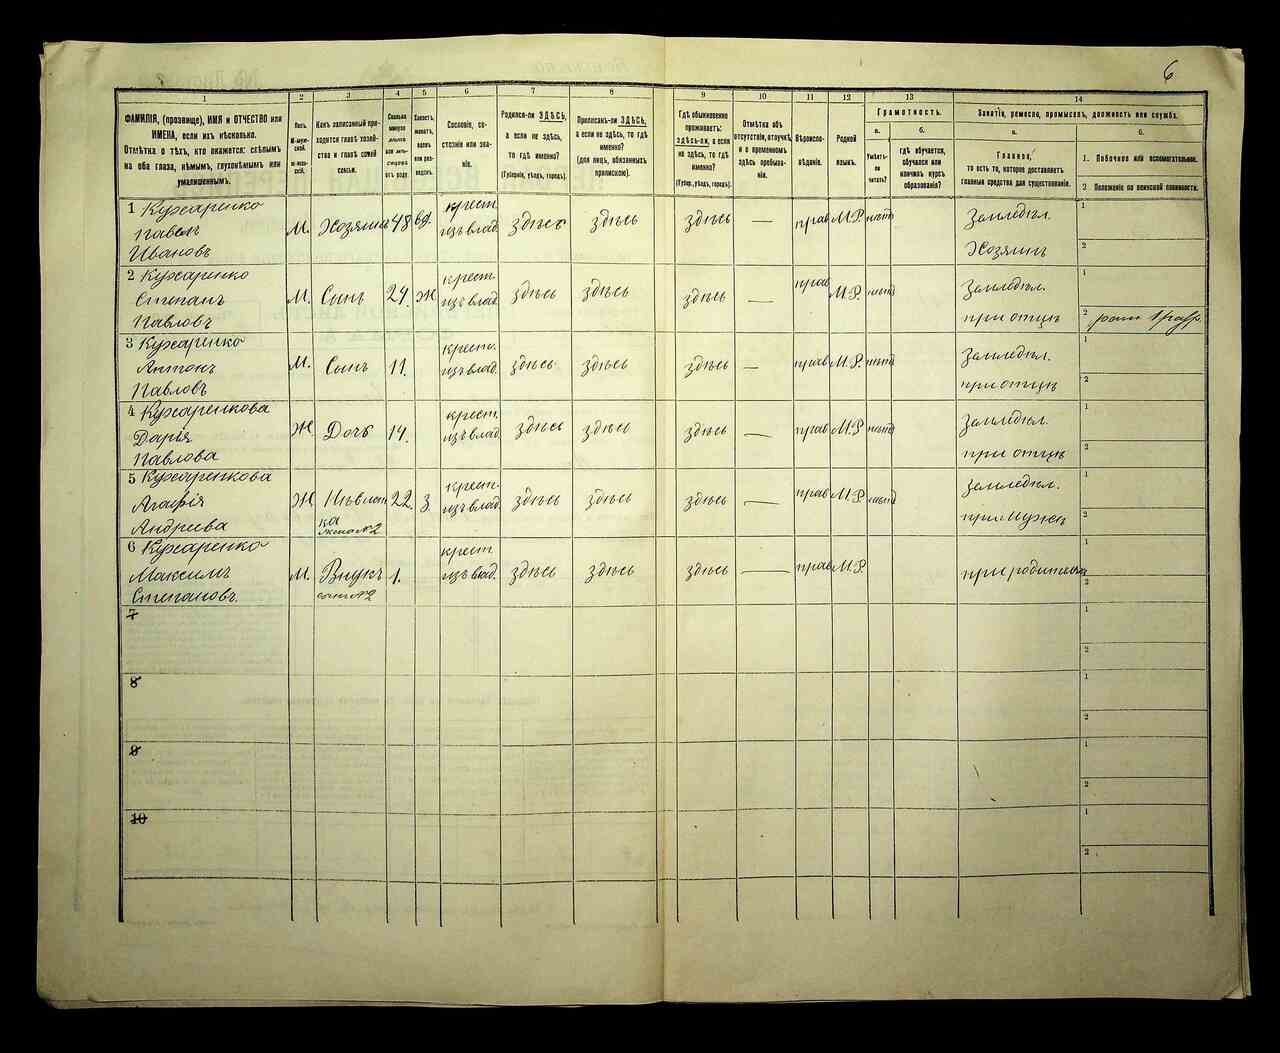 6
1 2 3 4 5 6 7 8 9 10 11 12 13 14
ФАМИЛІЯ, (прозвище), ИМЯ и ОТЧЕСТВО или
ИМЕНА, если ихъ нѣсколько.
Отмѣтка о тѣхъ, кто окажется: слѣпымъ
на оба глаза, нѣмымъ, глухонѣмымъ или
умалишеннымъ.
Полъ.
Какъ записанный при-
ходится главѣ хозяй-
ства и главѣ своей
семьи.
Сколько
минуло
лѣтъ
Холостъ,
женатъ,
вдовъ
или раз-
веденъ.
Сословіе, со-
стояніе или зва-
ніе.
Родился-ли ЗДѢСЬ,
а если не здѣсь,
то гдѣ именно?
(Губернія, уѣздъ, городъ).
Приписанъ-ли ЗДѢСЬ,
а если не здѣсь, то гдѣ
именно?
(для лицъ, обязанныхъ
припискою).
Гдѣ обыкновенно
проживаетъ:
здѣсь-ли, а если
не здѣсь, то гдѣ
именно?
(Губер., уѣздъ, городъ).
Отмѣтка объ
отсутствіи, отлучкѣ
и о временномъ
здѣсь пребыва-
ніи.
Вѣроиспо-
вѣданіе.
Родной
языкъ.
Грамотность.
а.
Умѣетъ-
ли
читать?
б.
гдѣ обучается,
обучался или
кончилъ курсъ
образованія?
Занятіе, ремесло, промыселъ, должность или служба.
а.
Главное,
то есть то, которое доставляетъ
главныя средства для существованія.
б.
1. Побочное или вспомогательное.
2. Положеніе по воинской повинности.
1 Кухаренко
Павелъ
Ивановъ
М. Хозяинъ 48 вд. крест.
изъ влад. здѣсь здѣсь здѣсь — прав М.Р. нѣтъ Земледѣл.
Хозяинъ
1
2
2 Кухаренко
Степанъ
Павловъ
М. Сынъ 24 Ж крест.
изъ влад. здѣсь здѣсь здѣсь — прав М.Р. нѣтъ Земледѣл.
при отцѣ
1
2
3 Кухаренко
Антонъ
Павловъ
М. Сынъ 11. крест.
изъ влад. здѣсь здѣсь здѣсь — прав М.Р. нѣтъ Земледѣл.
при отцѣ
1
2
4 Кухаренкова
Дарія
Павлова
Ж Дочь 14. крест.
изъ влад. здѣсь здѣсь здѣсь — прав М.Р нѣтъ Земледѣл.
при отцѣ
1
2
5 Кухаренкова
Агафія
Андреева
Ж Невѣст
ка
жена №2
22. З. крест.
изъ влад. здѣсь здѣсь здѣсь — прав М.Р нѣтъ Земледѣл.
при мужѣ
1
2
6 Кухаренко
Максимъ
Степановъ.
М. Внукъ
сынъ №2
1. крест
изъ влад. здѣсь здѣсь здѣсь — прав М.Р. при родителяхъ
1
2
7
1
2
8
1
2
9
1
2
10
1
2